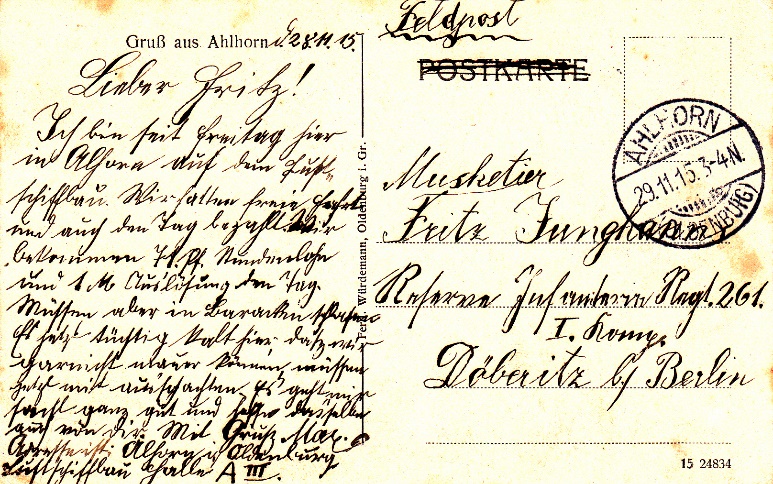 Gruß aus Ahlhorn, d. 28.11.15.
Lieber Fritz!
Ich bin seit Freitag hier
in Alhorn auf dem Luft-
schiffbau. Wir hatten freie Fahrt
und auch den Tag bezahlt. Wir
bekommen Pf. Stundenlohn
und 1 M Auslösung den Tag.
Müssen aber in Baracken schlafen
Es ist tüchtig kalt hier, daß wir
garnicht mauern können, müssen
jetzt mit ausschachten. Es geht mir
sonst ganz gut und hoffe dasselbe
auch von dir. Mit Gruß Max.
Adresse ist: Alhorn i. Oldenburg
Luftschiffbau Halle A III.
Ferd. Würdemann, Oldenburg i. Gr.
Feldpost
POSTKARTE
AHLHORN
29.11.15. 3-4 N.
(OLDENBURG)
Musketier
Fritz Junghans
Reserve Infanterie Regt. 261.
I. Komp.
Döberitz b/ Berlin
15 24834